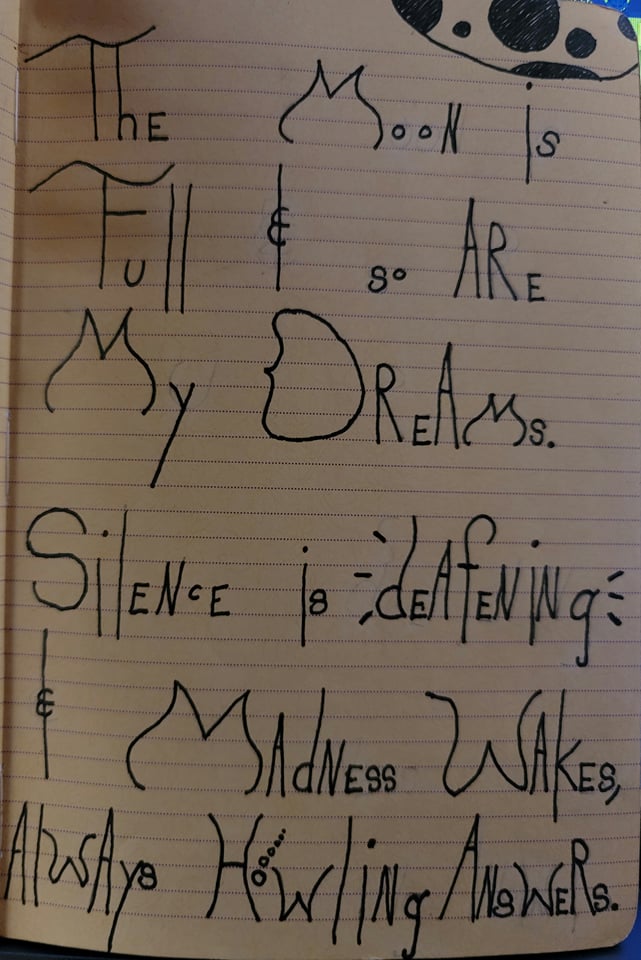 The Moon is
Full & so ARE
My DREAMs.
Silence is deafening
& Madness Wakes,
Always Howling Answers.